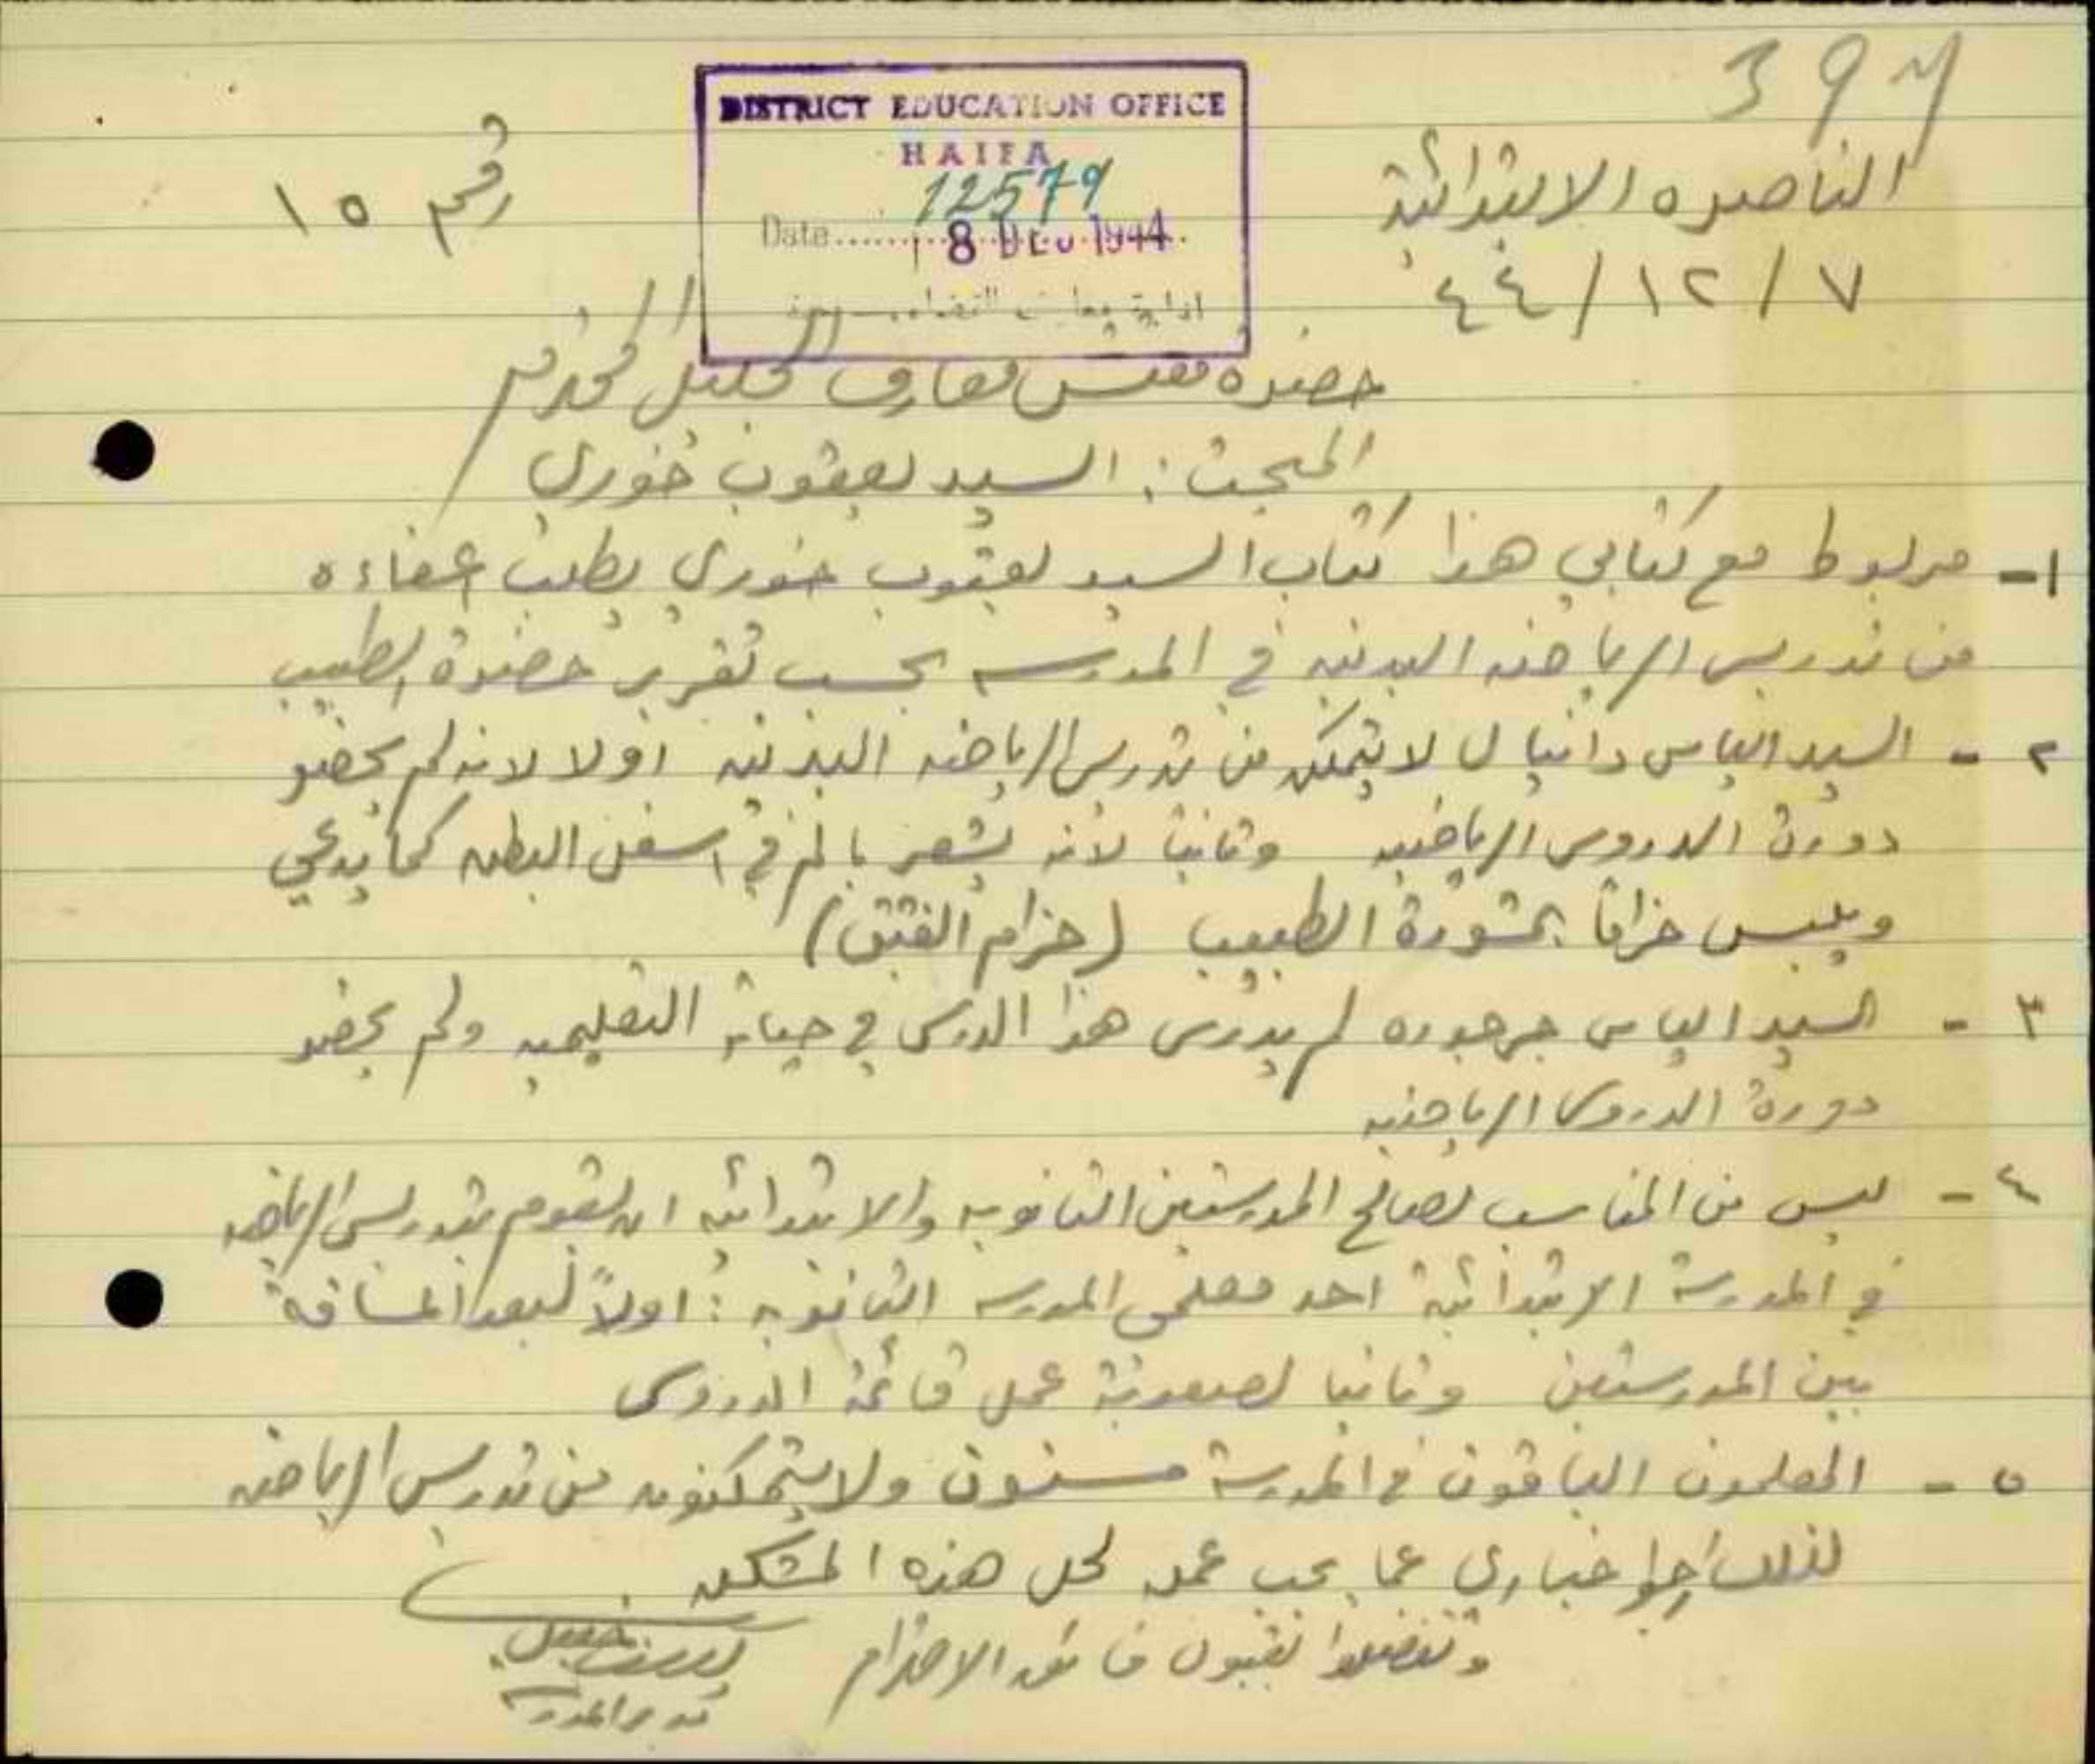 397
DISTRICT EDUCATION OFFICE
HAIFA
12579
Date 8 DEC 1944
الناصره الابتدائية
رقم ١٥
٧ / ١٢ / ٤٤
حضرة مفتش معارف الجليل المحترم
المبحث : السيد يعقوب خوري
١- مربوط مع كتابي هذا كتاب السيد يعقوب خوري يطلب اعفاءه
من تدريس الرياضه البدنيه في المدرسه بحسب تقرير حضرة الطبيب
٢ - السيد الياس دانيال لا يتمكن من تدريس الرياضه البدنيه اولا لانه لم يحضر
دورة الدروس الرياضيه وثانيا لانه يشعر بالم في اسفل البطن كما يدعي
ويلبس حزاما بمشورة الطبيب (حزام الفتق)
٣ - السيد الياس جرجوره لم يدرس هذا الدرس في حياته التعليميه ولم يحضر
دورة الدروس الرياضيه
٤ - ليس من المناسب لصالح المدرستين الثانويه والابتدائيه ان يقوم بتدريس الرياضه
في المدرسة الابتدائية احد معلمي المدرسه الثانويه : اولاً لبعد المسافة
بين المدرستين وثانيا لصعوبة عمل قائمة الدروس
٥ - المعلمون الباقون في المدرسة مسنون ولا يتمكنون من تدريس الرياضه
لذلك ارجو اخباري عما يجب عمله لحل هذه المشكله
وتفضلوا بقبول فائق الاحترام
مدير المدرسة